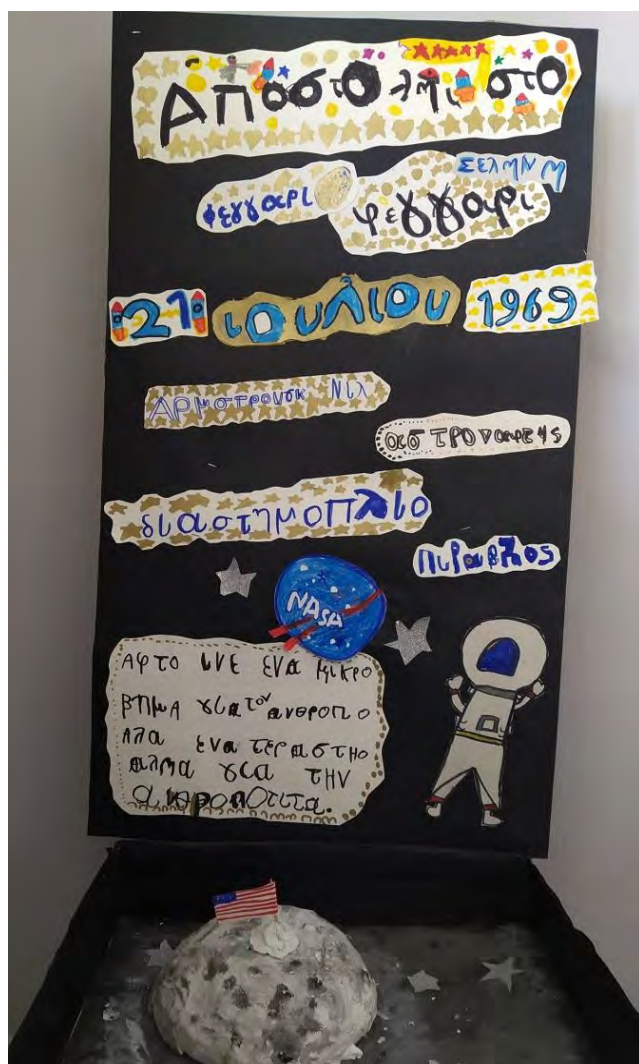 Αποστολμι στο
ΣΕΛΜΝΜ
φεγγαρι
φεγγαρι
21 ιουλιου 1969
ΑΡΜΣΤΡΟΝΣΚ ΝΙΛ
διαστημοπλιο
πιραβλος
NASA
ΑΦΤΟ ΙΝΕ ΕΝΑ ΜΙΚΡΟ
ΒΤΙΜΑ γιατον ανθροπο
ΑΛΑ ενα τεραστηο
αλμα για την
ανθροποτιτα.